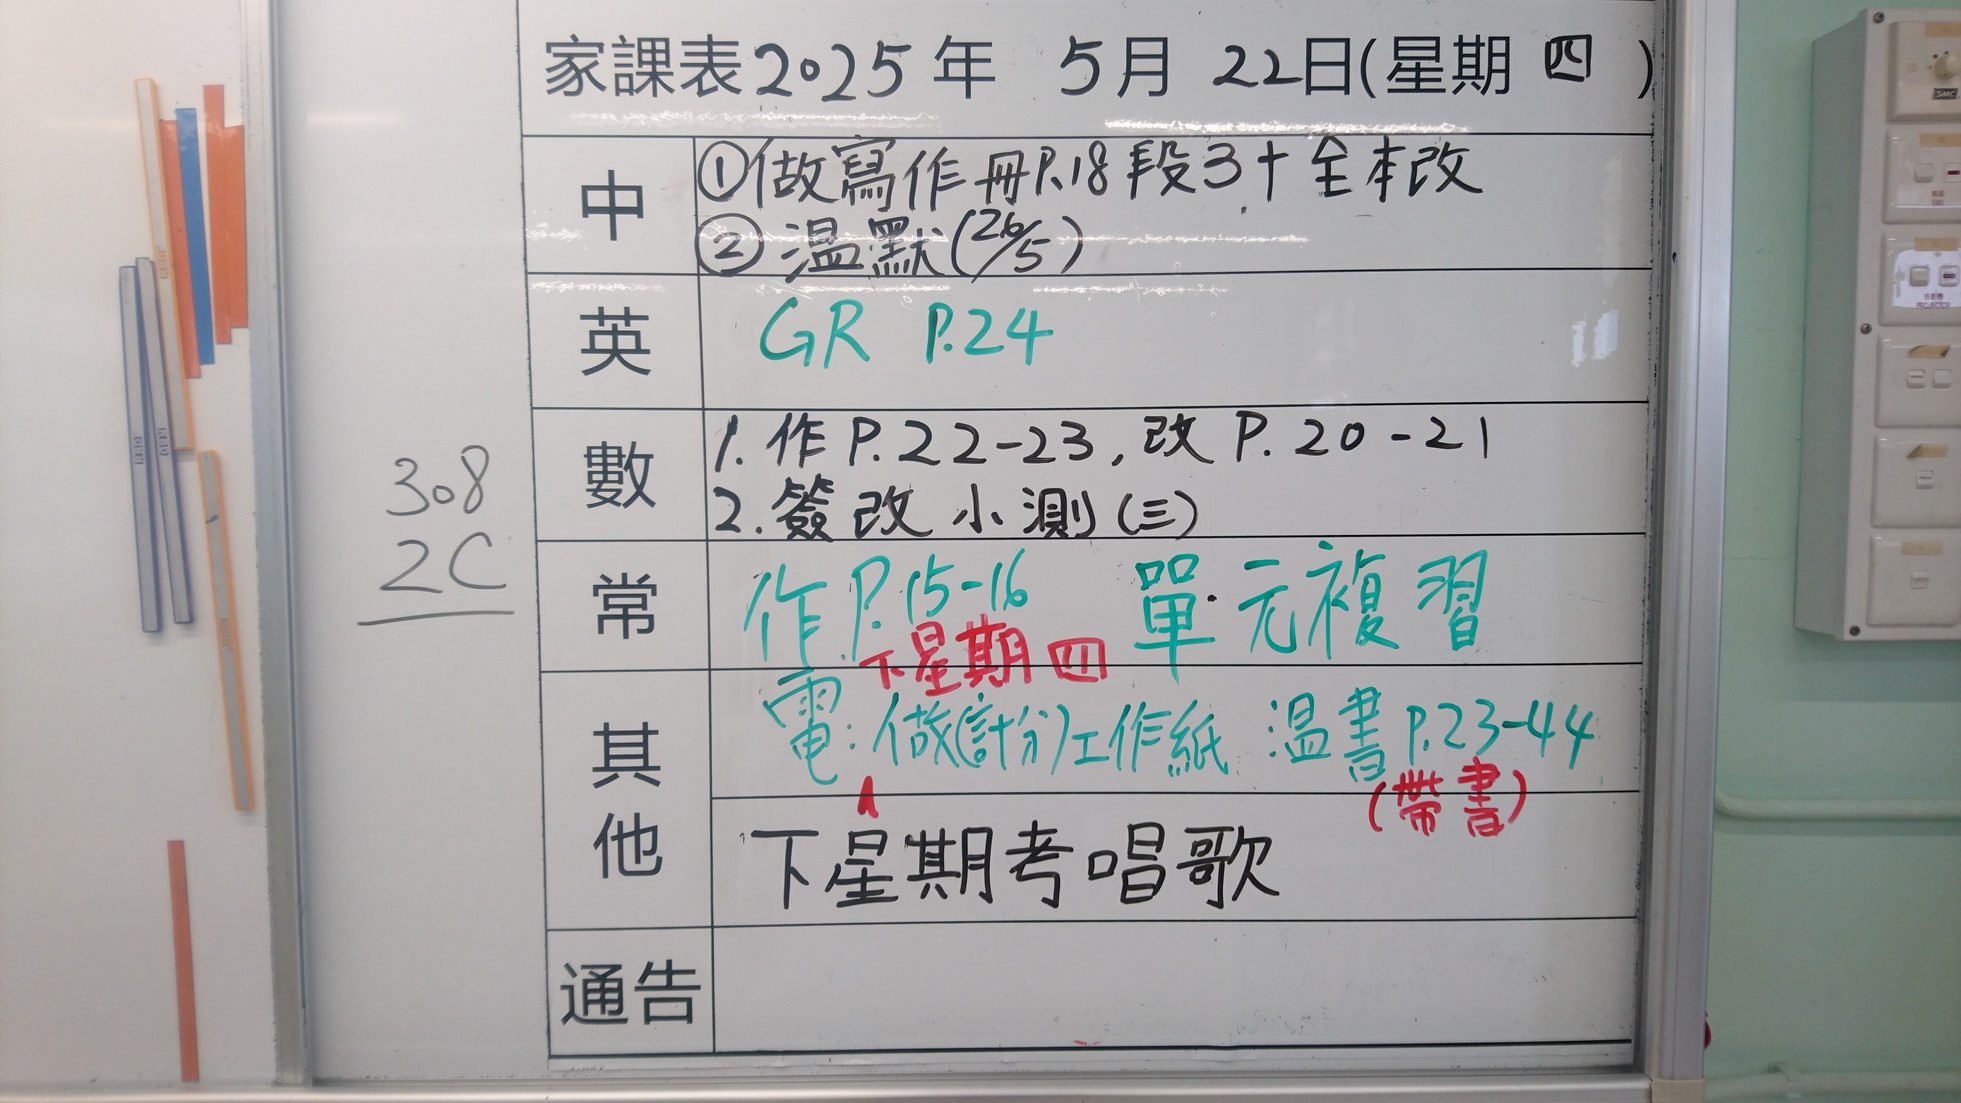 家課表2025年 5月 22日(星期 四 )
中
①做寫作冊P.18段3+全本改
②溫默(26/5)
英
GR P.24
數
1.作P.22-23,改P.20-21
2.簽改小測(三)
常
作P.15-16 單元複習
其他
下星期四
電:做(計分)工作紙 溫書P.23-44
(帶書)
下星期考唱歌
通告
308
2C
SMC
PROJECTOR